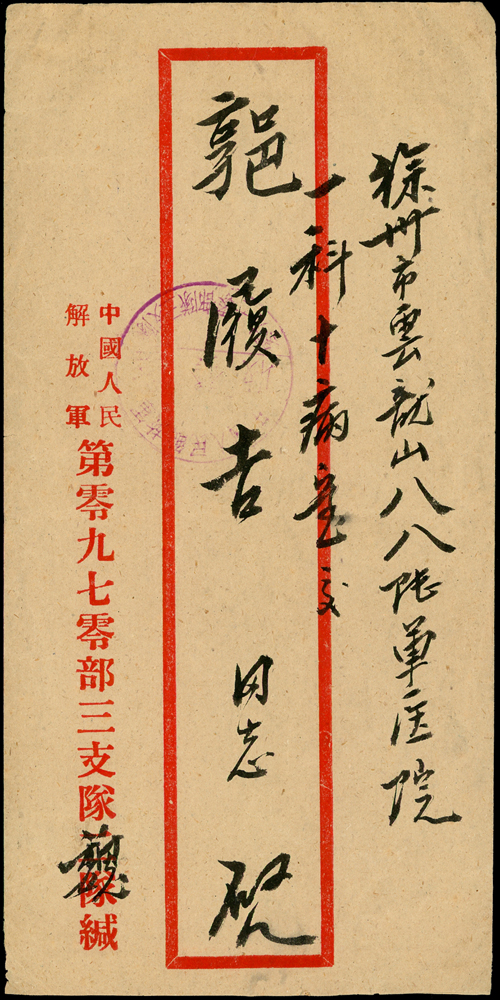 徐州市雲龍山八八陸軍医院
一科十病室交
郭履吉 同志 啓
中國人民
解放軍
第零九七零部三支隊隊緘